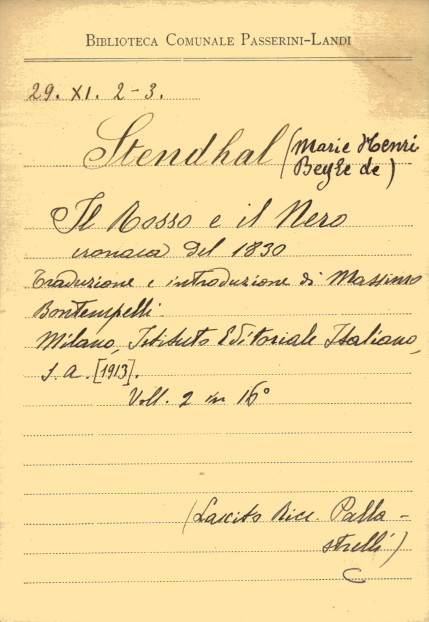 BIBLIOTECA COMUNALE PASSERINI-LANDI
29. XI. 2-3.
Stendhal (Marie Henri
Beyle de)
Il Rosso e il Nero
cronaca del 1830
Traduzione e introduzione di Massimo
Bontempelli.
Milano, Istituto Editoriale Italiano,
s. a. [1913].
Voll. 2 in 16°
(Lascito Bice. Palla-
strelli)